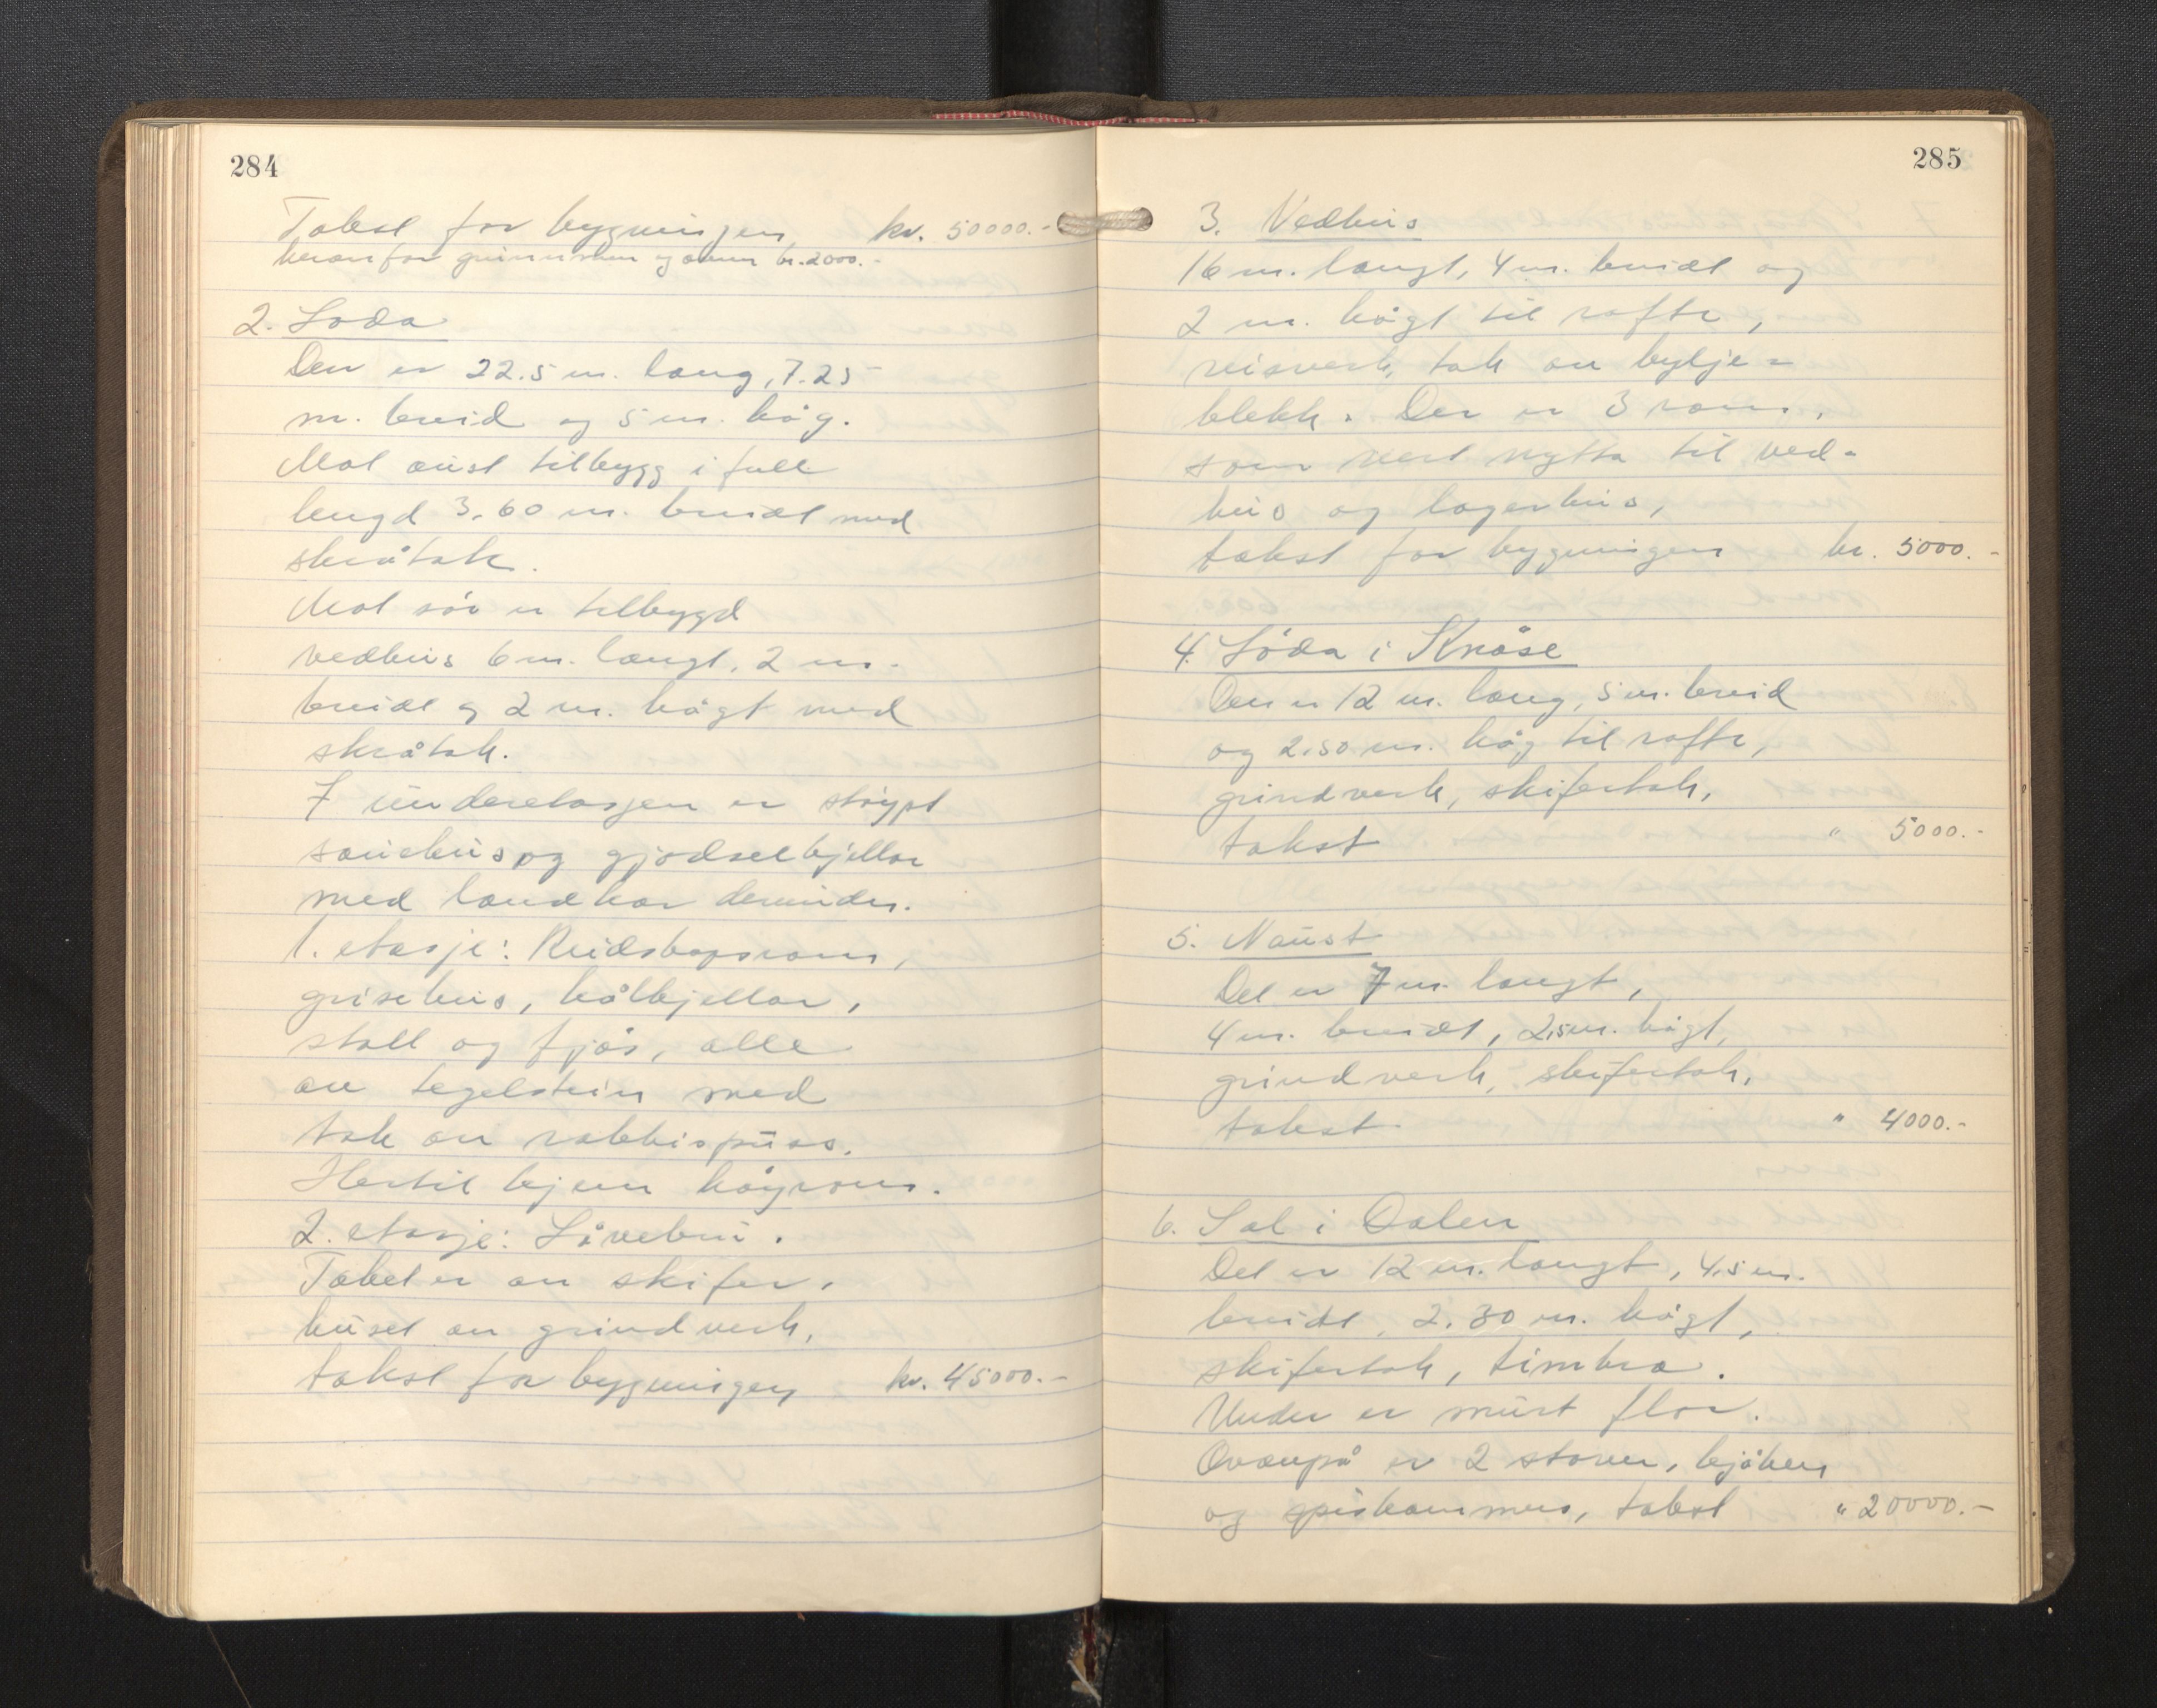 284
Takst for bygningen, kr. 50000.-
herav for grunnmur og kr. 2000.-
2. Löda
Den er 22.5 m. lang, 7.25
m. breid og 5 m. håg.
Mot aust tilbygg i full
lengd 3.60 m. breidt med
skråtak.
Mot sör er tilbygd
vedhus 6 m. langt, 2 m.
breidt og 2 m. högt med
skråtak.
I underetasjen er stöypt
sauehus og gjödselkjellar
med landkar derunder.
1. etasje: Reidskapsrom,
grisehus, kålkjellar,
stall og fjös, alle
av tegelstein med
tak av rabbispuss.
Hertil kjem höyrom.
2. etasje: Låvebru.
Taket er av skifer,
huset av grindverk,
takst for bygningen kr. 45000.-
285
3. Vedhus
16 m. langt, 4 m. breidt og
2 m. högt til raft,
reisverk, tak av bylgje=
blekk. Der er 3 rom,
som vert nytta til ved-
hus og lagerhus,
takst for bygningen kr. 5000.-
4. Löda i Knåse
Den er 12 m. lang, 5 m. breid
og 2.50 m. håg til raft,
grindverk, skifertak,
takst " 5000.-
5. Naust
Det er 7 m. langt,
4 m. breidt, 2,5 m. högt,
grindverk, skifertak,
takst " 4000.-
6. Sel i Dalen
Det er 12 m. langt, 4,5 m.
breidt, 2.30 m. högt,
skifertak, timbra.
Under er murt flor.
Ovanpå er 2 stover, kjöken
og spiskammers, takst " 20000.-